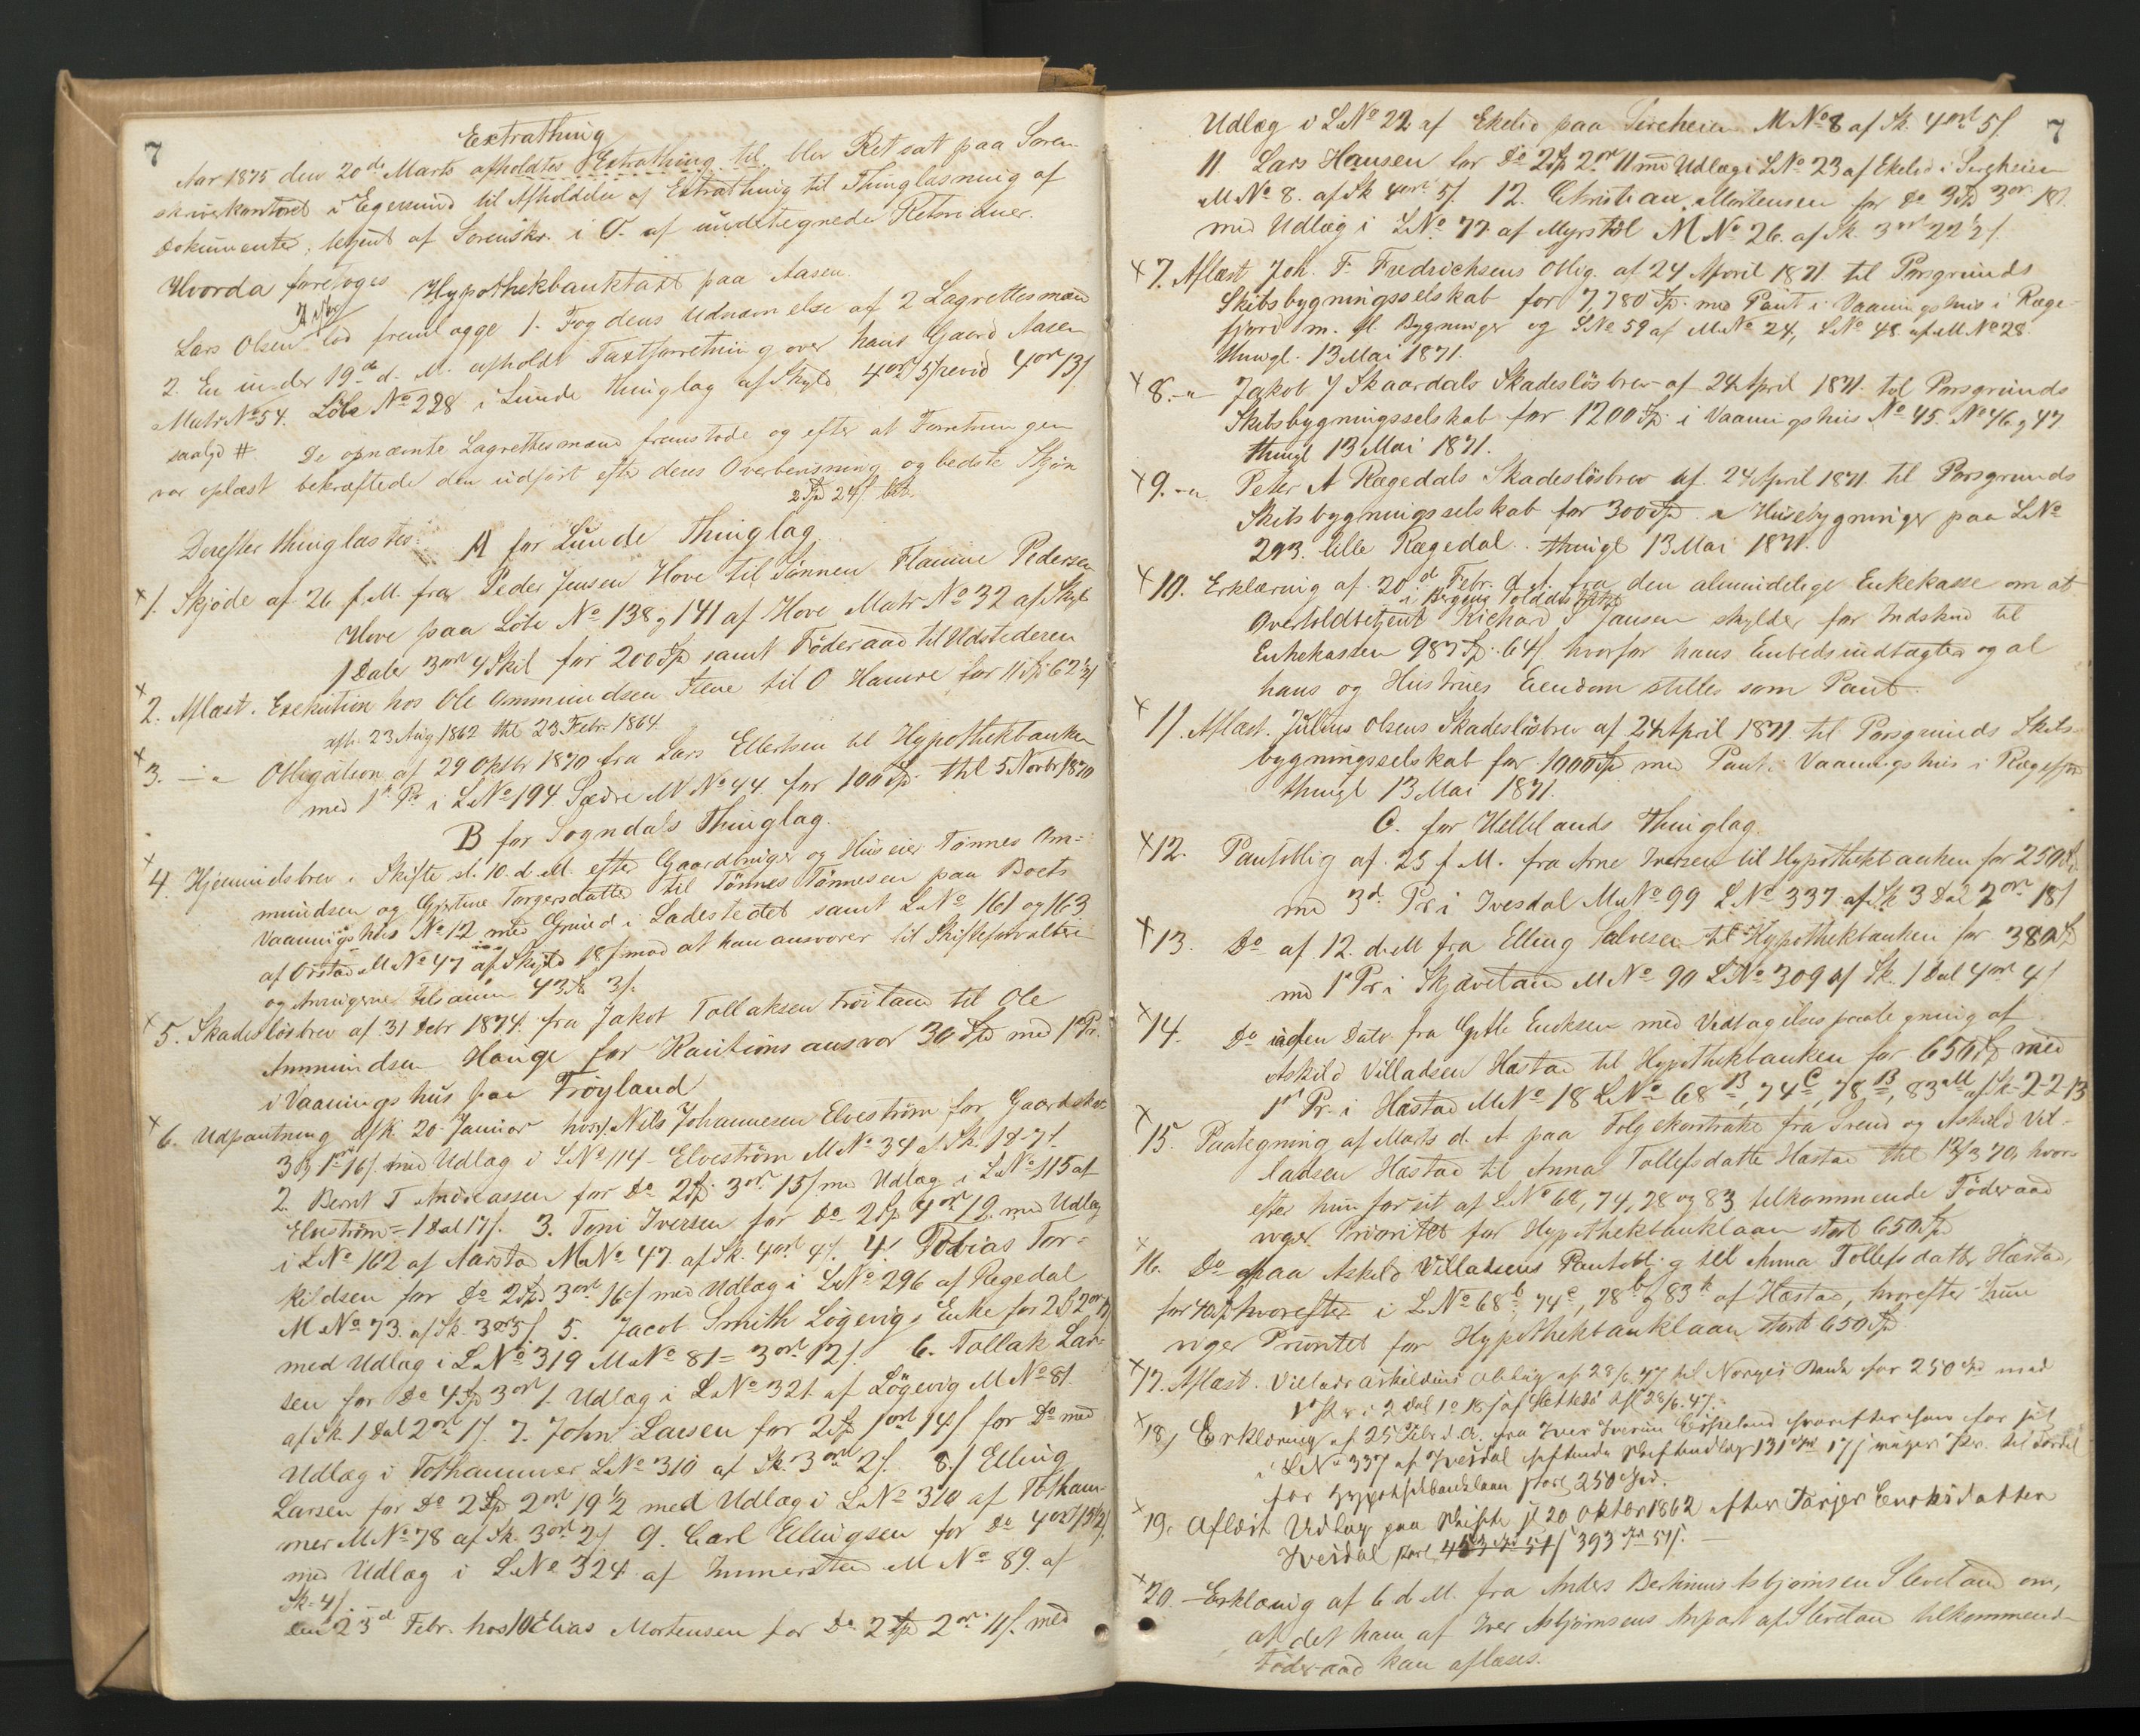 7
Extrathing
Aar 1875 den 20de Marts afholdtes Extrathing til blev Ret sat paa Soren-
skriverkontoret i Egersund til Afholdelse af Extrathing til Thinglæsning af
Dokumenter, betjent af Sorenskr. i O. af undertegnede Retsvidner.
Hvorda foretoges Hypothekbanktaxt paa Aasen.
Lars Olsen Aasen lod fremlægge 1. Fogdens Udnævnelse af 2 Lagrettesmænd
2. En under 19de d. M. afholdt Taxtforretning over hans Gaard Aasen
Matr No 54. Löbe No 228 i Lunde thinglag af Skyld 4 ort 5 s revid 4 or 13 s
saalyd #. De opnævnte Lagrettesmænd fremstode og efter at Forretningen
var oplæst bekræftede den udført efter deres Overbevisning og bedste Skjøn
2 Spd 24 s bet.
Derefter thinglæstes: A for Lunde Thinglag.
x 1. Skjøde af 26 f. M. fra Peder Jensen Hove til Sønnen Flamine Pedersen
Hove paa Löbe No 138 og 141 af Hove Matr No 32 af Skyld
1 Daler 3 ort 4 Skil for 200 Spd samt Föderaad til Udstederen
x 2. Aflæst. Exekution hos Ole Ommundsen Frene til O Hamre for 11 Spd 62 1/2 s
afh. 23 Aug 1862 thl 23 Febr 1864.
x 3. -"- Obligation af 29 Oktbr 1870 fra Lars Ellertsen til Hypothekbanken
med 1s Pr i LNo 194 Sædre M No 44 for 100 Spd. thl 5 Novbr 1870
B for Sogndals Thinglag.
x 4. Hjemmelsbrev i Skifte sl. 10. d. M. efter Gaardbruger og Huseier Tønnes Om-
mundsen og Gjertine Torgersdatter til Tönnes Tönnesen paa Boets
Vaaningshus No 12 med Grund i Ladestedet samt LNo 161 og 163
af Orstad M No 47 af Skyld 18 s mod at han ansvarer til Skifteforvalteren
og Arvingerne tilsamm 43 Spd 3 s.
x 5. Skadeslösbrev af 31 Debr 1874 fra Jakob Tollaksen Fröiland til Ole
Ammundsen Hauge for Kautionsansvar 30 Spd med 1s Pr.
i Vaaningshus paa Fröyland
x 6. Udpantning afh. 20 Januar hos 1. Nils Johannesen Elveström for Gaardskat
3 Spd 1 ort 16 s med Udlæg i LNo 114 Elveström MNo 34 af Sk. 1 d - 7 s
2. Bernt T Andreassen for Do 2 Spd 3 or 15 s med Udlæg i LNo 115 af
Elveström = 1 Dal 17 s. 3. Toni Iversen for Do 2 Spd 4 or 12 med Udlæg
i LNo 162 af Aarstad MNo 47 af Sk. 4 ort 9 s. 4. Tobias Tor-
kildsen for Do 2 Spd 3 ort 16 s med Udlæg i LNo 296 af Regedal
M No 73 af Sk. 3 or 5 s. 5. Jacob Smith Lögevigs Enke for 2 Spd 2 or 19
med Udlæg i LNo 319 MNo 81 = 3 ort 12 s. 6. Tollak Lar-
sen for Do 4 Spd 3 ort s. Udlæg i LNo 321 af Lögevig MNo 81
af Sk. 1 Dal 2 ort 1 s. 7. John Larsen for 2 Spd 1 ort 14 s for Do med
Udlæg i Tothammer LNo 310 af Sk. 3 ort 2 s. 8. Elling
Larsen for Do 2 Spd 2 ort 19 1/2 med Udlæg i LNo 310 af Totham-
mer MNo 78 af Sk. 3 ort 2 s 9. Carl Ellingsen for Do 4 ort 13 1/2 s
med Udlæg i LNo 324 af Immerstein M No 89. af
Sk = 4 s.
den 23d Febr. hos 10 Elias Mortensen for Do 2 Spd 2 or 11 s. med
7
Udlæg i LNo 22 af Ekelid paa Sireheien MNo 8 af Sk. 4 ort 5 s.
11. Lars Hansen for Do 2 Spd 2 or 11 med Udlæg i LNo 23 af Ekelid i Sireheien
MNo 8. af Sk 4 ort 5 s. 12. Christian Mortensen for Do 3 Spd 3 or 18 s
med Udlæg i LNo 77 af Myrstöl MNo 26. af Sk. 3 ort 22 1/2 s.
x 7. Aflæst Joh. F. Fredrichsens Oblig. af 24 April 1871 til Porsgrunds
Skibsbygningsselskab for 7,780 Spd. med Pant i Vaaningshus i Ræge-
fjord m. fl. Bygninger og LNo 59 af MNo 24, LNo 48 af MNo 28.
thingl. 13 Mai 1871.
x 8. -"- Jakob J Skaardals Skadeslösbrev af 24 April 1871 til Porsgrunds
Skibsbygningsselskab for 1200 Spd. i Vaaningshus No 45. No 46 og 47
thingl 13 Mai 1871.
x 9. -"- Peter A Rægedals Skadeslösbrev af. 24 April 1871 til Porsgrunds
Skibsbygningsselskab for 300 Spd. i Husebygninger paa LNo
293. lille Rægedal. thingl 13 Mai 1871.
x 10. Erklæring af. 20d Febr. d. A. fra den almindelige Enkekasse om at
i Bergens Tolddistrikt
Overtoldbetjent Richard S Jansen skylder for Indskud til
Enkekassen 983 Spd. 64 s hvorfor hans Embedsindtægter og al
hans og Hustrues Eiendom stilles som Pant.
x 11. Aflæst. Julius Olsens Skadeslösbrev af 24 April 1871. til Porsgrunds Skibs-
bygningsselskab for 1000 Spd med Pant i Vaaningshus i Rægefjord
thingl 13 Mai 1871.
C. for Hellelands Thinglag
x 12. Pantoblig af. 25 f. M. fra Arne Iversen til Hypothekbanken for 250 Spd
med 3d. Pr i Ivesdal MNo 99 LNo 337 af Sk 3 Dal 2 or 18 s
x 13. Do af 12. d. M fra Elling Salvesen til Hypothekbanken for 380 Spd
med 1s Pr i Skjæveland MNo 90 LNo 309 af Sk. 1 Dal 4 ort 4 s
x 14. Do uden Dato fra Gitle Eriksen med Vedtagelsespaategning af
Askild Villadsen Hæstad til Hypothekbanken for 650 Spd med
1s Pr. i Hæstad MNo 18 LNo 68 B, 74 C, 78 B, 83 af Sk - 2-2-13
x 15. Paategning af Marts d. A. paa Folgekontrakt fra Svend og Askild Vil-
ladsen Hæstad til Anna Tollefsdatter Hæstad thl 12/3 70, hvor-
efter hun for sit af LNo 68, 74, 78 og 83 tilkommende Föderaad
viger Prioritet for Hypothekbanklaan stort 650 Spd
x 16. Do paa Askild Villadsens Pantoblig til Anna Tollefsdatter Hæstad,
for 70 Spd hvorefter i LNo 68 b, 74 c, 78 b og 83 b af Hæstad, hvorefter hun
viger Prioritet for Hypothekbanklaan stort 650 Spd
x 17. Aflæst. Villads Askildsens Oblig af 28/6. 47 til Norges Bank for 250 Spd med
1s Pr i 2 Dal 1 o 18 s af Hettesd thl 28/6. 47.
x 18, Erklæring af 25 Febr d. A. fra Iver Iversen Eiskeland hvorefter han for sit
i LNo 337 af Ivesdal heftende Skifteudlæg 131 Spd 17 s viger Pr. til Fordel
for Hypothekbanklaan stort 250 Spd.
x 19. Aflæst Udlæg paa Skifte sl 20 Oktbr 1862 efter Tarjer Eriksdatter
Ivesdal stort 453 Spd 51 s 393 Spd 51 s.
x 20. Erklæring af 6 d. M. fra Anders Bertinius Asbjørnsen Sleveland om,
at det ham af Iver Asbjørnsens Anpart af Sleveland tilkommende
Föderaad kan aflæses.